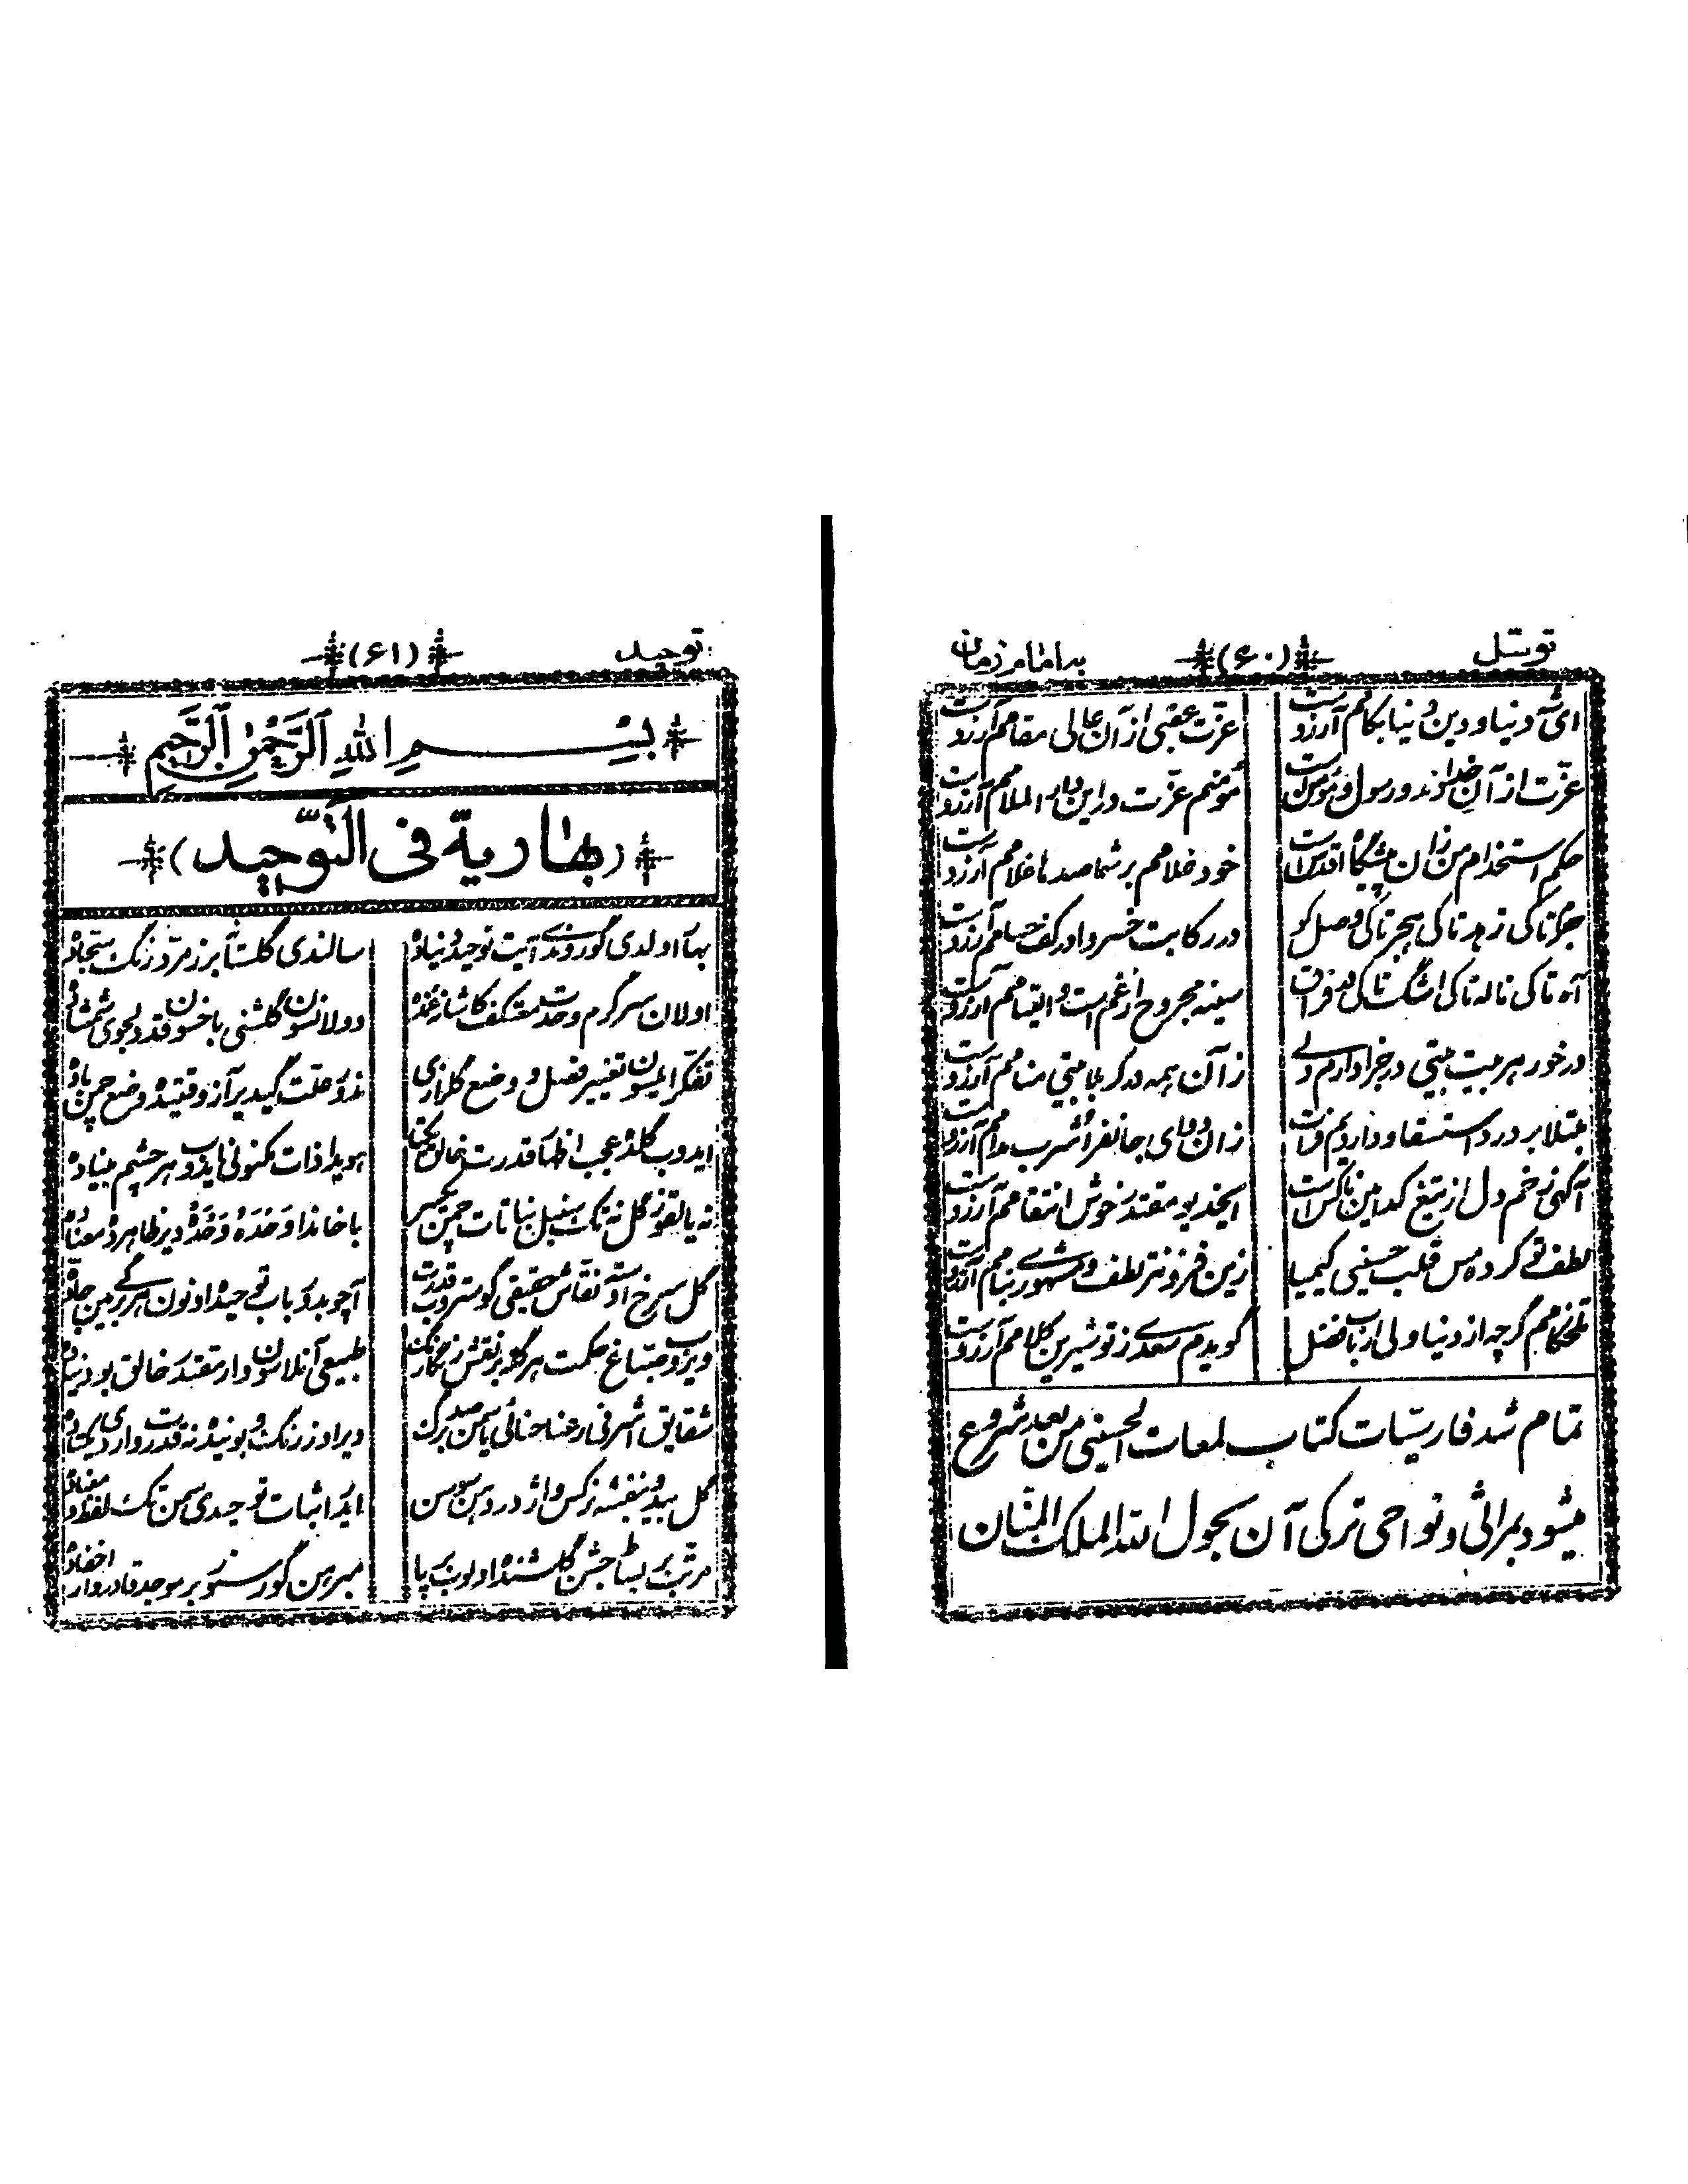 توسّل (۶۰) بدامام زمان
ای شه دنیا و دین دنیا بکامم آرزوست
عزّت عقبی از آن عالی مقامم آرزوست
عزّت از آن خداوند و رسول و مؤمن است
مؤمنم عزّت در این دار الملامم آرزوست
حکم استخدام من زان پیشگاه اقدس است
خود غلامم بر شما صدها غلامم آرزوست
در رکابت خسروا در کف حسامم آرزوست
آه تا کی ناله تا کی اشک تا کی در فراق
سینه مجروح از غم است و التیامم آرزوست
در خور هر بیت بیتی در جزا دارم ولی
زان همه در کربلا بیتی بنامم آرزوست
مبتلا بر درد استسقا و داریم فرات
زان دوای جانفزا شرب مدامم آرزوست
آگهی زخم دل از تیغ کدامین ناکس است
ایخدیو مقتدر خوش انتقامم آرزوست
لطف تو کرده مس قلب حسینی کیمیا
زین فزونتر لطف و مشهوری بنامم آرزوست
تلخکامم گرچه از دنیا ولی ارباب فضل
گویدم سعدی ز تو شیرین کلامم آرزوست
تمام شد فارسیّات کتاب لمعات الحسینی من بعد شروع
میشود بمراثی و نواحی ترکی آن بحول الله الملک المنّان
توحید (۶۱)
بِسْمِ اللهِ الرَّحْمٰنِ الرَّحیمِ
(بهاریّة فی التّوحید)
بهار اولدی گوروندی آیت توحید دنیاده
سالندی گلستانه بر زمرّد رنگ سجّاده
اولان سرگرم وحدت معتکف کاشانه
دولانسون گلشنی باخسون قد دلجوی شمشاده
تفکّر ایلسون تغییر فصل و وضع گلزاری
ندور علّت گیدیر آز وقتیده وضع چمن باده
ایدوب گلده عجب اظهار قدرت خالق یکتا
هویدا ذات مکنونی ایدوب هر چشم بیناده
نه یالقوز گل نه تک سنبل نباتات چمن یکسر
باخاندا وَحْدَهُ وَحْدَهُ دیر ظاهرده معناده
گل سرخ اوسته نقّاش حقیقی گوستروب قدرت
آچوبدور باب توحید اوندن هر گز بر بیله جادّه
ویروب صبّاغ حکمت هر گله بر نقش رنگارنگ
طبیعی آنلاسون وار مقتدر خالق بو دنیاده
شقایق اشرفی رعنا حنائی یاسمن صد برگ
ویر اوز رنگ و بونیده نه قدرت واردی یکتاده
گل بید و بنفشه نرگس و اژدر دهن سوسن
ایدر اثبات توحیدی سمن تک لفظ و معناده
مرتّب بر بساط جشن گلشنده اولوب برپا
مبرهن گورسنور بر موجد قادر وار اخفاده